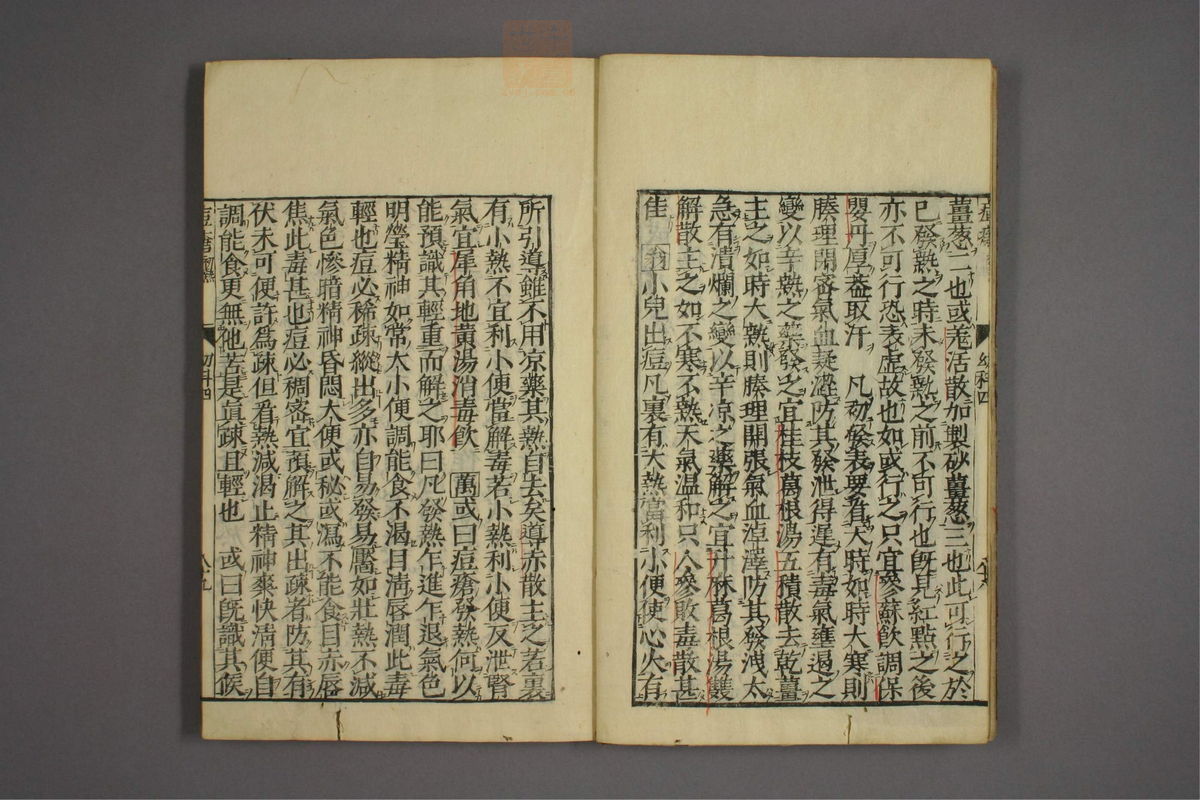 薑葱二也或羗活散加製砂薑葱三也此可行之於
已發熱之時未發熱之前不可行也旣見紅點之後
亦不可行恐表虛故也如或行之只宜參蘇飲調保
嬰丹厚蓋取汗　凡初發表要看大時如時大寒則
腠理閉密氣血凝澁防其發泄得遲有毒氣壅遏之
變以辛熱之藥發之宜桂枝葛根湯五積散去乾薑
主之如時大熱則腠理開張氣血淖澤防其發洩太
急有潰爛之變以辛凉之藥解之宜升麻葛根湯雙
解散主之如不寒不熱天氣温和只人參敗毒散甚
佳　小兒出痘凡裏有大熱當利小便使心火有
幼科四
所引導雖不用凉藥其熱自去矣導赤散主之若裏
有小熱不宜利小便當解毒若小熱利小便反泄腎
氣宜犀角地黄湯消毒飲　萬或曰痘瘡發熱何以
能預識其輕重而解之耶曰凡發熱乍進乍退氣色
明瑩精神如常大小便調能食不渴目淸唇潤此毒
輕也痘必稀疎縱出多亦自易發易靨如壯熱不減
氣色慘暗精神昏悶大便或秘或瀉不能食目赤唇
焦此毒甚也痘必稠密宜預解之其出疎者防其有
伏未可便許爲疎但看熱減渴止精神爽快淸便自
調能食更無他苦是眞疎且輕也　或曰旣識其候
幼科四